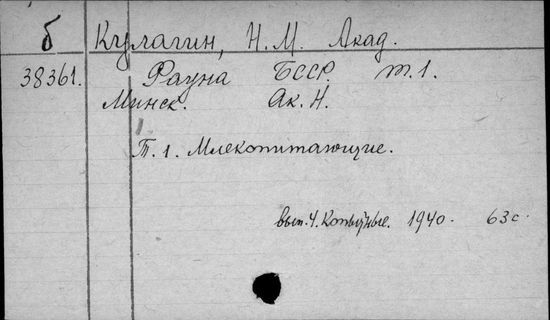 б Кулагин, Н.М. Акад.
38361. Фауна БССР. т.1.
Минск. Ак. Н.
Т. 1. Млекопитающие.
вып. 4. Копытные. 1940. 63 с.